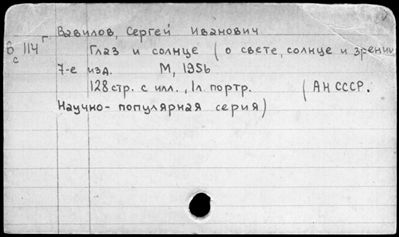 Вавилов, Сергей Иванович
б 114 г
с
Глаз и солнце (о свете, солнце и зрении
7-е изд. М, 1956
128 стр. с илл., 1л. портр. (АН СССР.
Научно-популярная серия)